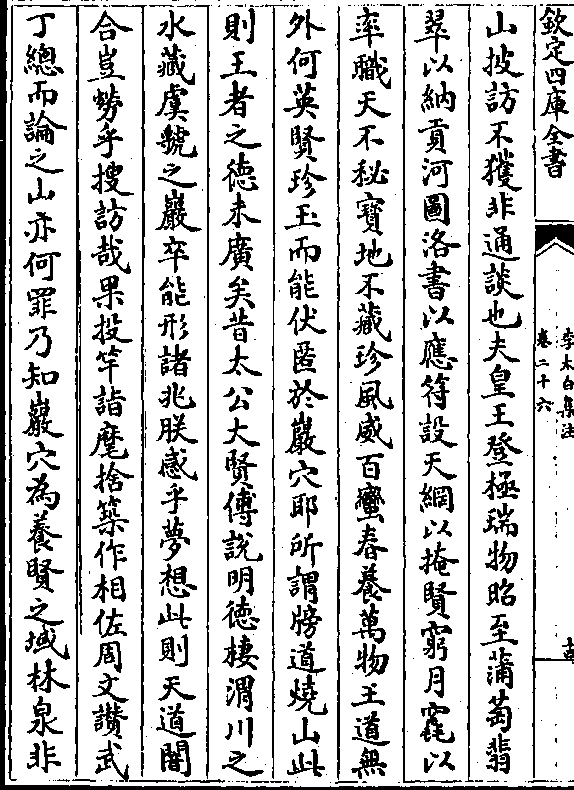 欽定四庫全書
李太白集注
卷二十六
山披訪不獲非通談也夫皇王登極瑞物昭至蒲萄翡
翠以納貢河圖洛書以應符設天網以掩賢窮月窟以
率職天不秘寶地不藏珍風威百蠻春養萬物王道無
外何英賢珍玉而能伏匿於巖穴耶所謂牓道燒山此
則王者之德未廣矣昔太公大賢傅說明德棲渭川之
水藏虞虢之巖卒能形諸兆朕感乎夢想此則天道闇
合豈勞乎搜訪哉果投竿詣麾捨築作相佐周文讚武
丁總而論之山亦何罪乃知巖穴為養賢之域林泉非